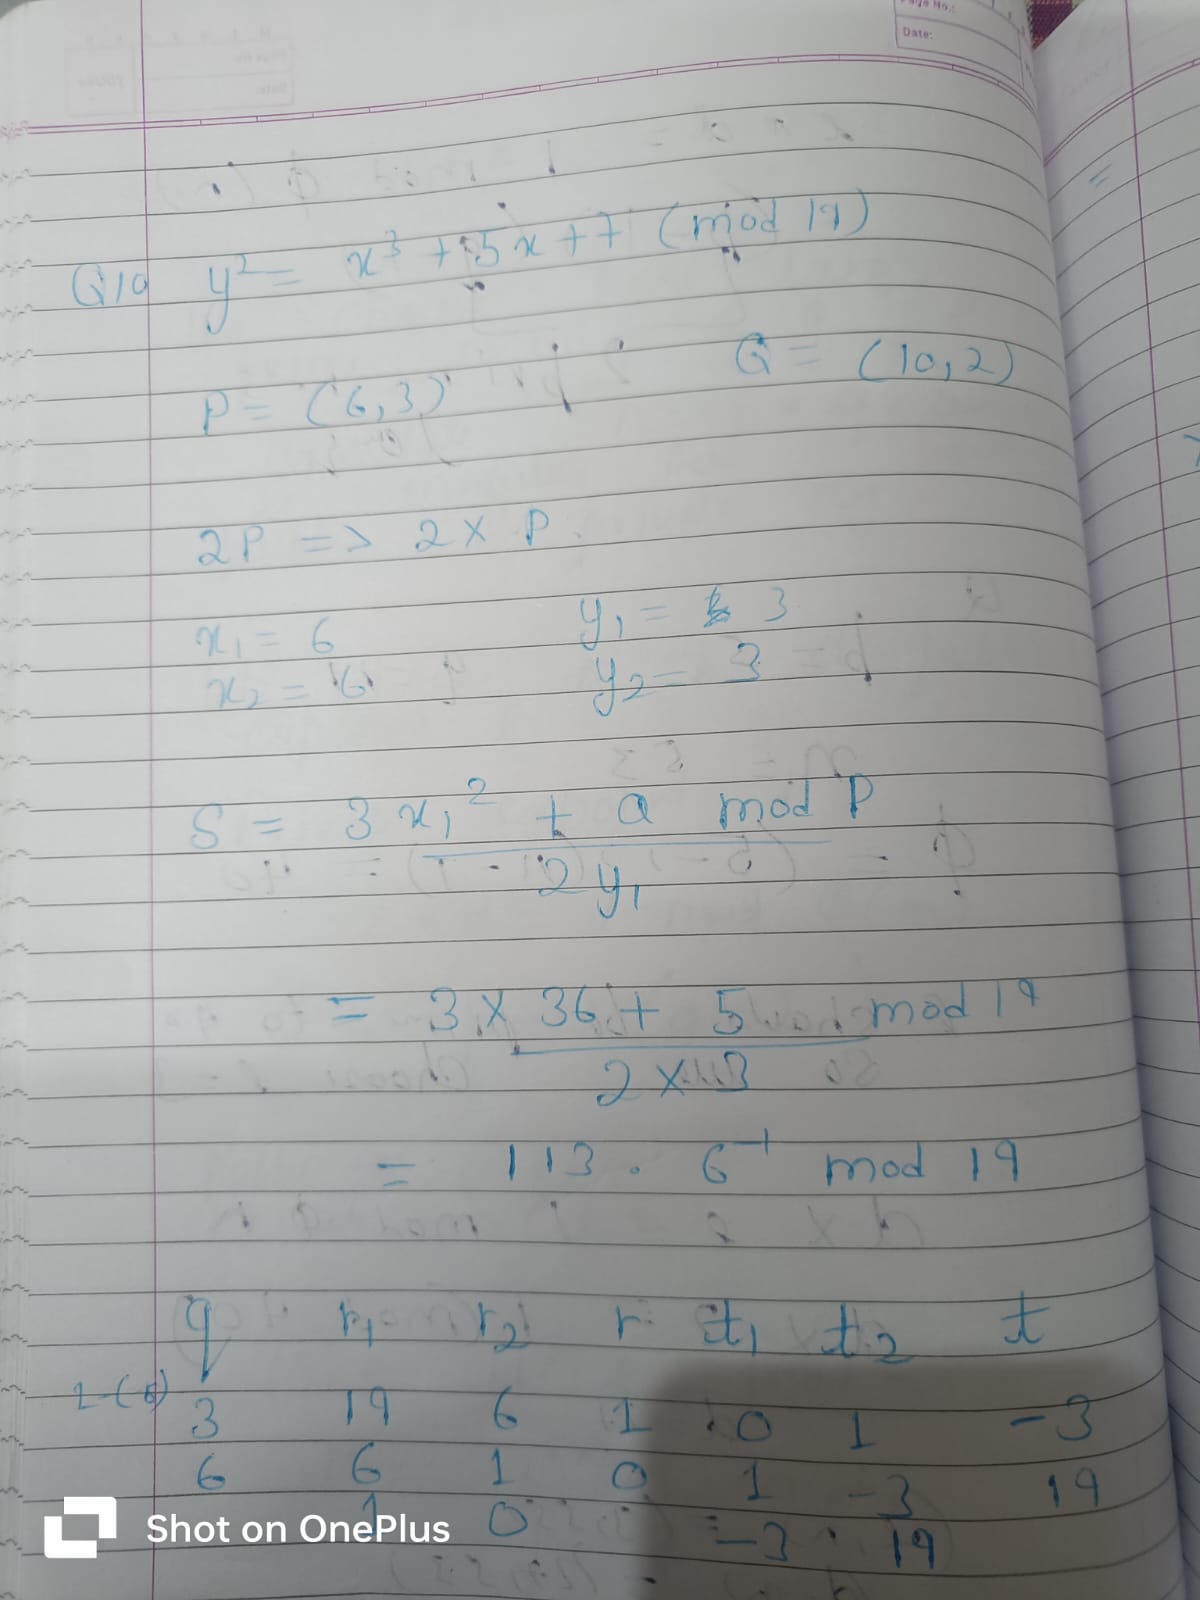 Page No.:
Date:
Q10 y² = x³ + 5x + 7 (mod 19)
P = (6,3) Q = (10,2)
2P => 2 × P.
x₁ = 6 y₁ = 3
x₂ = 6 y₂ = 3
S = 3x₁² + a mod P
2y₁
= 3 × 36 + 5 mod 19
2 × 3
= 113 . 6⁻¹ mod 19
q r₁ r₂ r t₁ t₂ t
3 19 6 1 0 1 -3
6 6 1 0 1 -3 19
1 0 -3 19
Shot on OnePlus